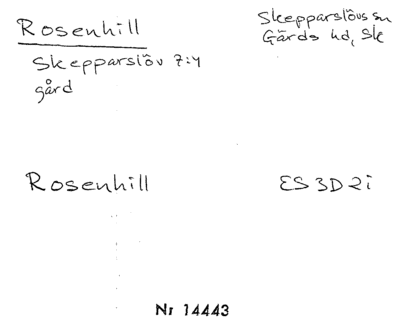 Rosenhill
Skepparslövs sn
Gärds hd, Sk
Skepparslöv 7:4
gård
Rosenhill
ES 3D 2i
Nr 14443